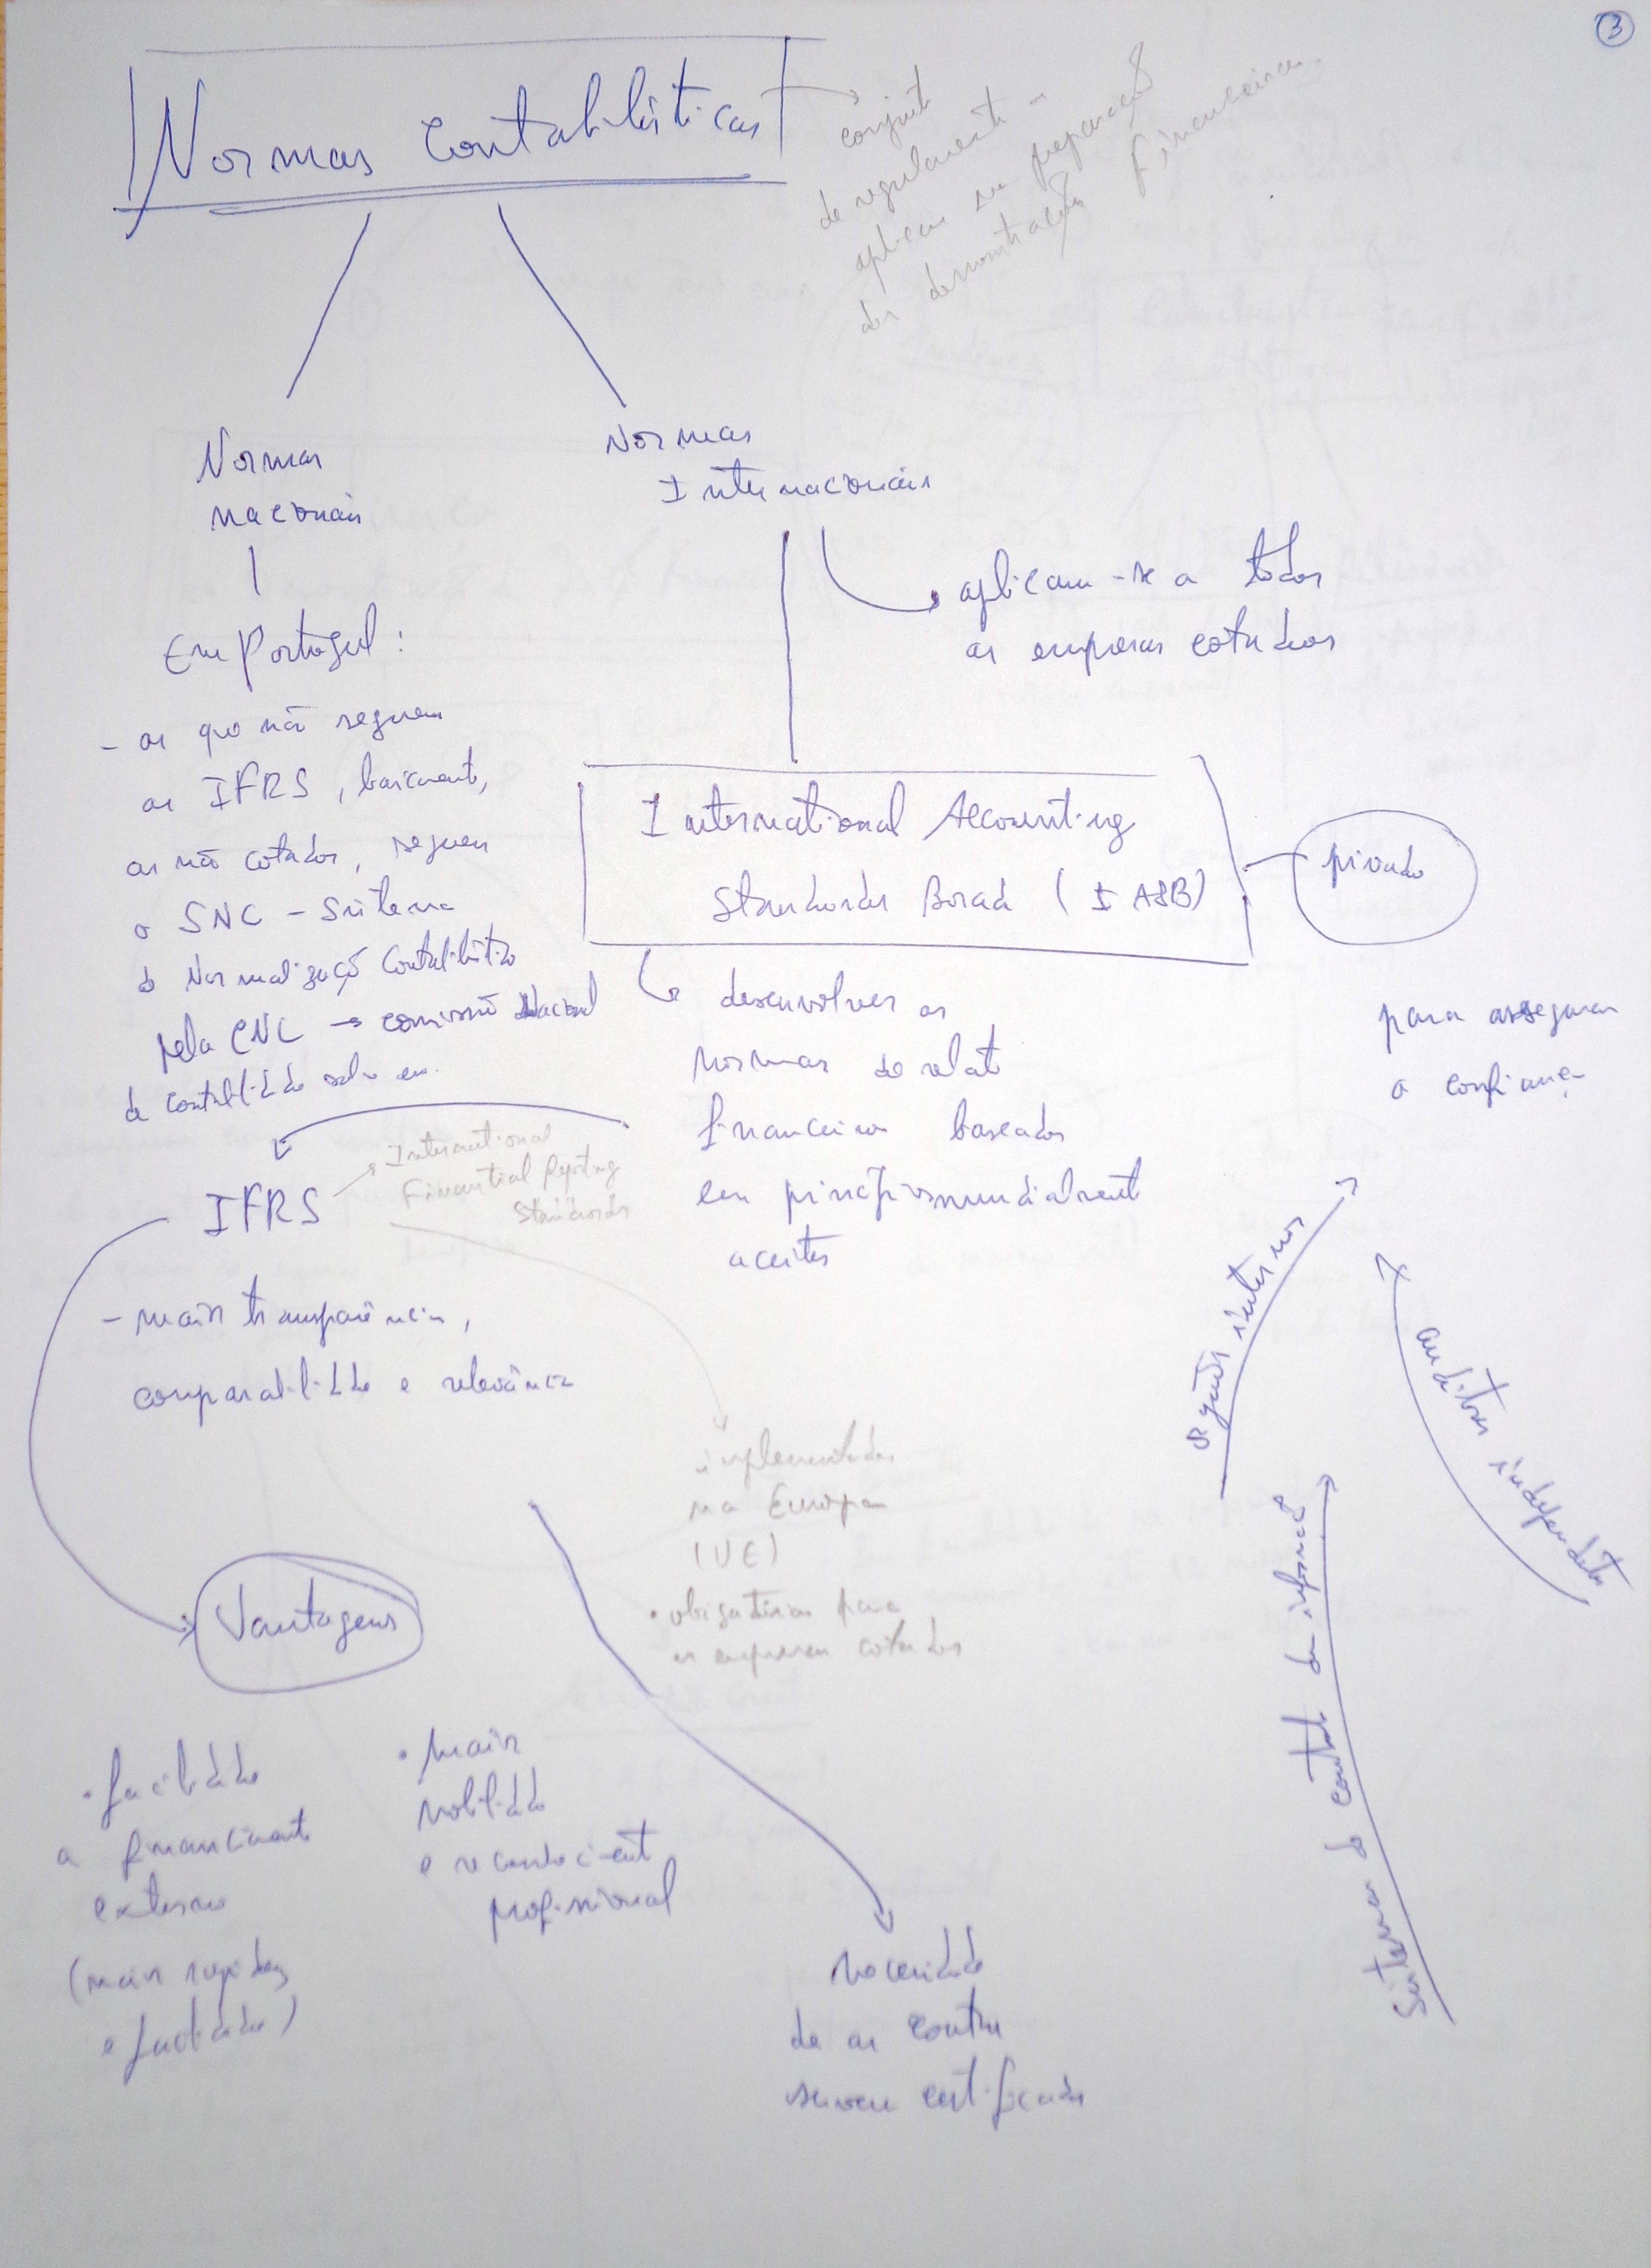 3
Normas Contabilísticas
conjunto
de regulamento -
aplicar na preparação
das demonstrações financeiras.
Normas
nacionais
Normas
Internacionais
aplicam-se a todas
as empresas cotadas
Em Portugal:
- as que não seguem
as IFRS, basicamente,
as não cotadas, seguem
o SNC - Sistema
de Normalização Contabilística
pela CNC → comissão Nacional
de contabilidade
International Accounting
Standards Borad (IASB)
privado
desenvolver as
normas de relato
financeiro baseadas
em princípios mundialmente
aceites
para assegurar
a confiança
IFRS
International
Financial Reporting
Standards
- mais transparência,
comparabilidade e relevância
implementadas
na Europa
(UE)
• obrigatórias para
as empresas cotadas
órgãos internos
auditores independentes
Sistema de controlo da informação
Vantagens
• facilidade
a financiamento
externo
(mais rapidez
e facilidade)
• Mais
mobilidade
e reconhecimento
profissional
Necessidade
de as contas
serem certificadas